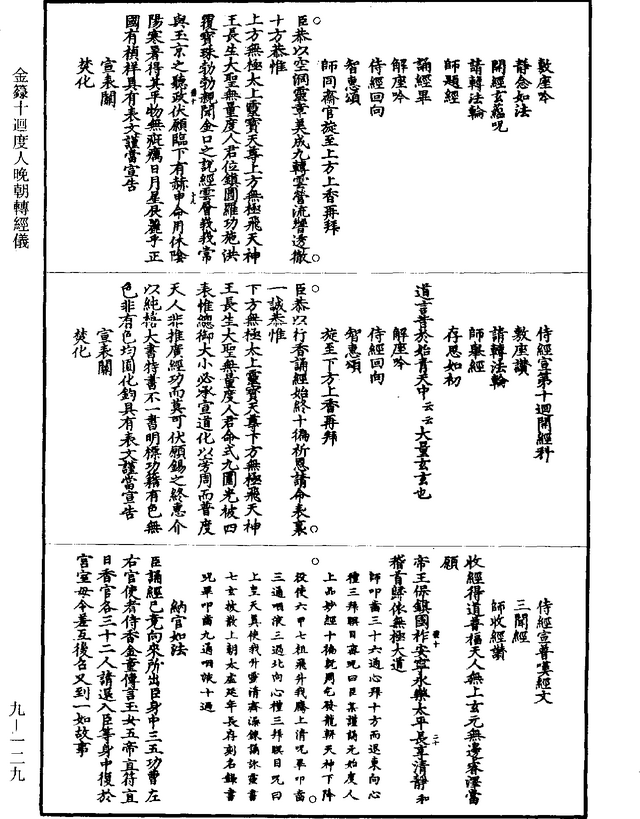 敷座吟
靜念如法
開經玄蘊呪
請轉法輪
師題經
誦經畢
解座吟
侍經回向
智惠頌
師同齋官旋至上方上香再拜
臣恭以空洞靈章美成九轉雲營流響透徹
十方恭惟
上方無極太上靈寶天尊上方無極飛天神
王長生大聖無量度人君位鎮圓羅功施洪
覆寶珠勃勃親聞金口之說經雲會峩峩常
與玉京之聽政伏願臨下有赫申命用休陰
陽寒暑得其平物無疵癘日月星辰麗乎正
國有禎祥具有表文謹當宣告
宣表關
焚化
侍經宣第十迴開經科
敷座讚
請轉法輪
師舉經
存思如初
道言昔於始青天中云云大量玄玄也
解座吟
侍經回向
智惠頌
旋至下方上香再拜
臣恭以行香誦經始終十徧祈恩請命表裏
一誠恭惟
下方無極太上靈寶天尊下方無極飛天神
王長生大聖無量度人君命式九圍光被四
表惟總御大小必承宣道化以旁周而普度
天人非推廣經功而莫可伏願錫之終惠介
以純禧大書特書不一書明標功籍有色無
色非有色均囿化鈞具有表文謹當宣告
宣表關
焚化
侍經宣普嘆經文
三聞經
師收經讚
收經得道普福天人無上玄元無邊聖澤當
願
帝王保鎮國祚安寧永樂太平長享清靜和
稽首歸依無極大道
師叩齒三十六通心拜十方而退東向心
種三拜瞑目密呪曰臣某謹誦元始度人
上品妙經十徧既周乞發龍軿天神下降
役使六甲七祖飛升我騰上清呪畢叩齒
三通咽液三過北向心種三拜瞑目呪曰
上皇天真使我升靈清齋澡鍊誦詠靈書
七玄披散上朝太虛延年長存刻名錄書
呪畢叩齒九通咽液十過
納官如法
臣誦經已竟向來所出臣身中三五功曹左
右官使者侍香金童傳言玉女五帝直符直
日香官各三十二人請還入臣等身中復於
宮室毋令差互後召又到一如故事
金籙十迴度人晚朝轉經儀
九—一二九